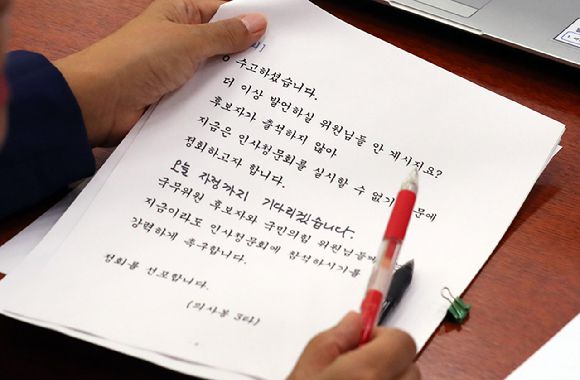 수고하셨습니다.
더 이상 발언하실 위원님들 안 계시지요?
후보자가 출석하지 않아
지금은 인사청문회를 실시할 수 없기 문에
정회하고자 합니다.
오늘 자정까지 기다리겠습니다.
국무위원 후보자와 국민의힘 위원님들께
지금이라도 인사청문회에 참석하시기를
강력하게 촉구합니다.
정회를 선포합니다.
(의사봉 3타)